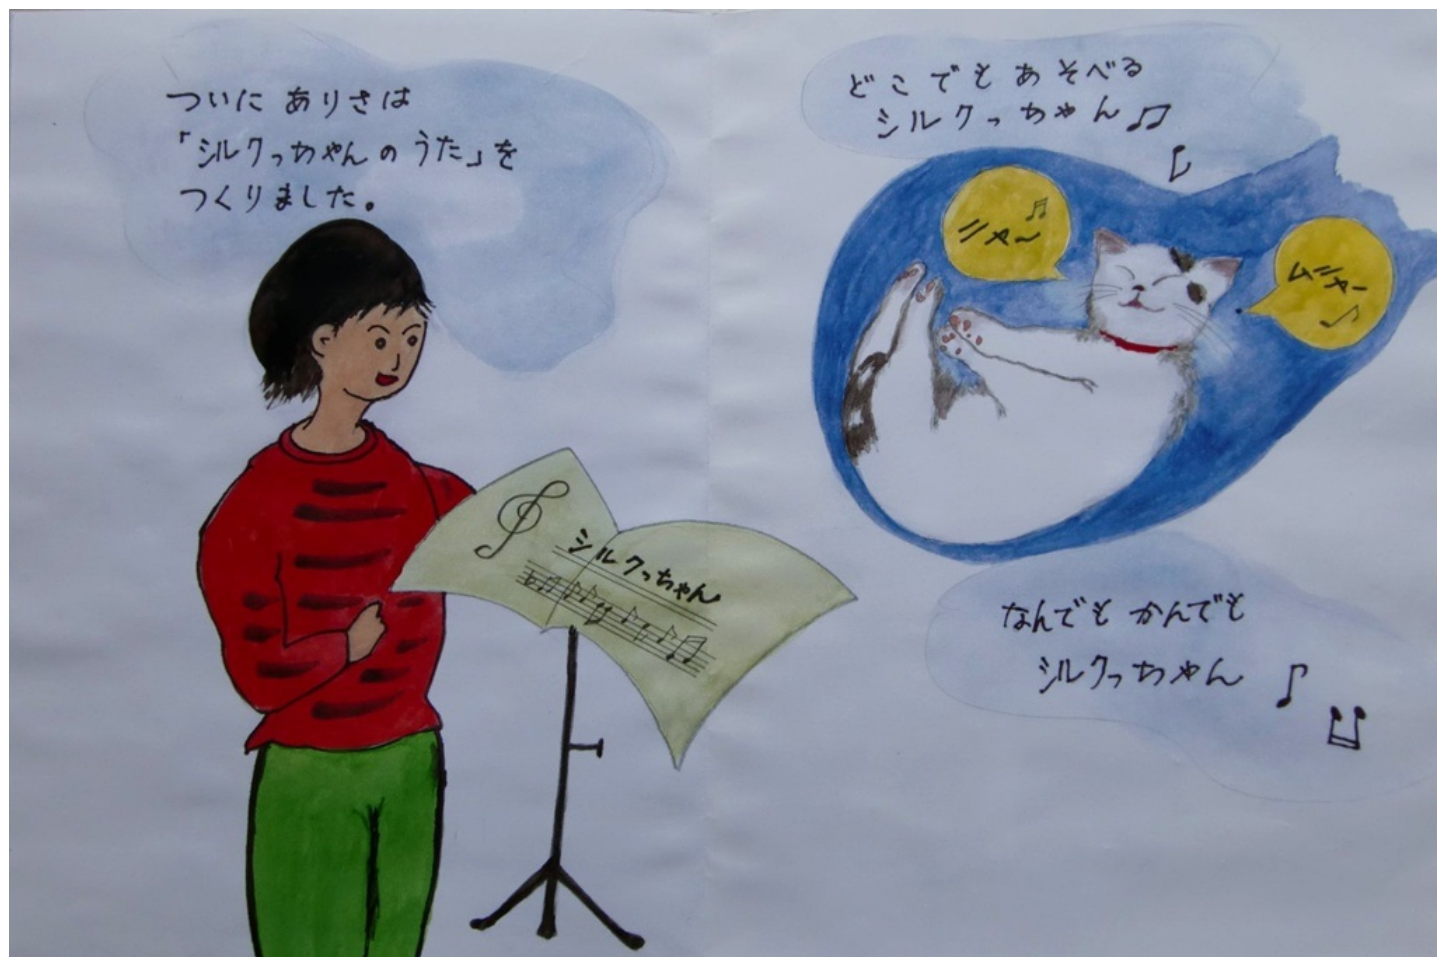 ついに ありさは
「シルクっちゃんのうた」を
つくりました。
シルクっちゃん
どこでも あそべる
シルクっちゃん♫
ニャ〜
ムニャー
なんでも かんでも
シルクっちゃん♪